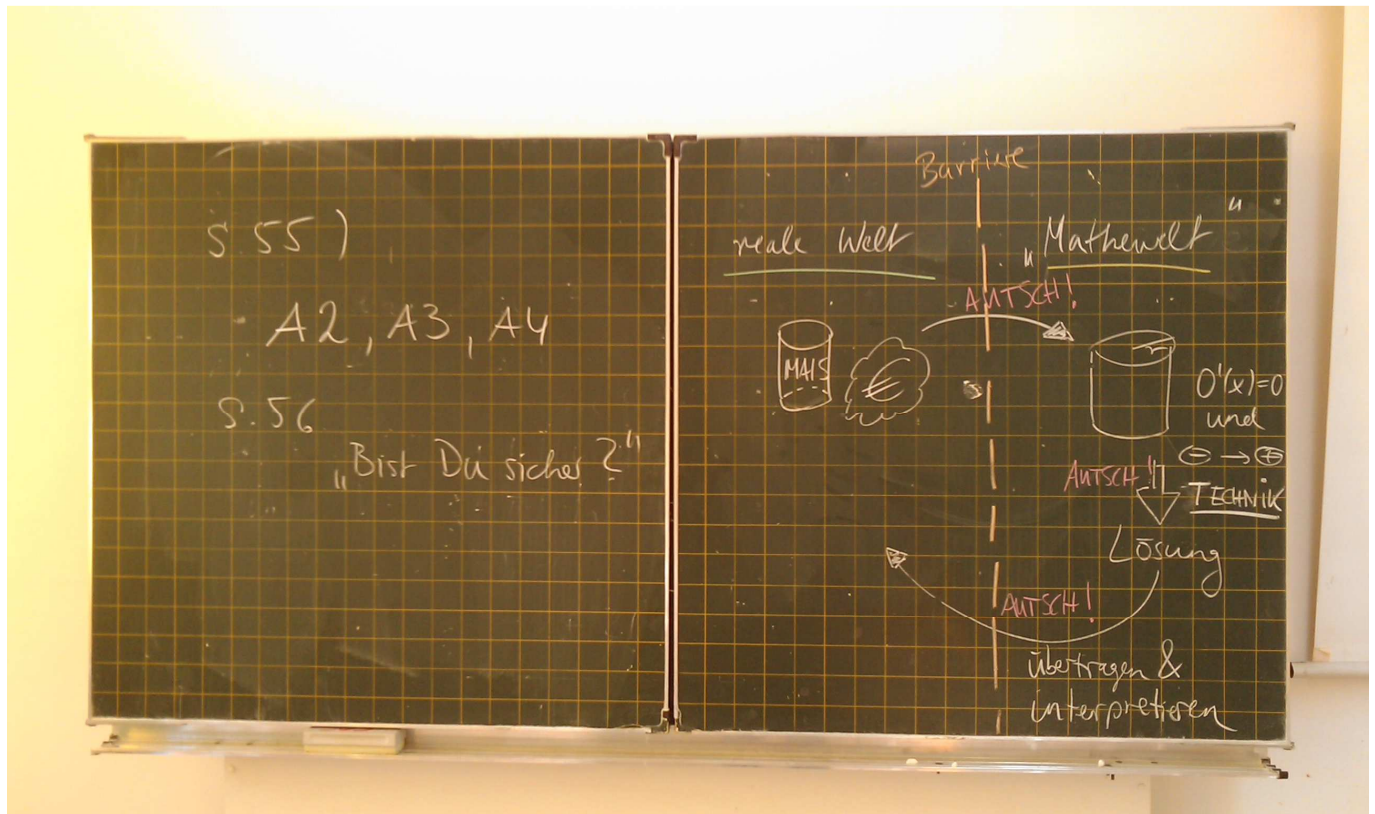 S. 55)
A2, A3, A4
S. 56
„Bist Du sicher?"
Barriere
reale Welt
„Mathewelt"
AUTSCH!
MAIS
€
O'(x)=0
und
⊖ → ⊕
AUTSCH!
TECHNIK
Lösung
AUTSCH!
übertragen &
interpretieren